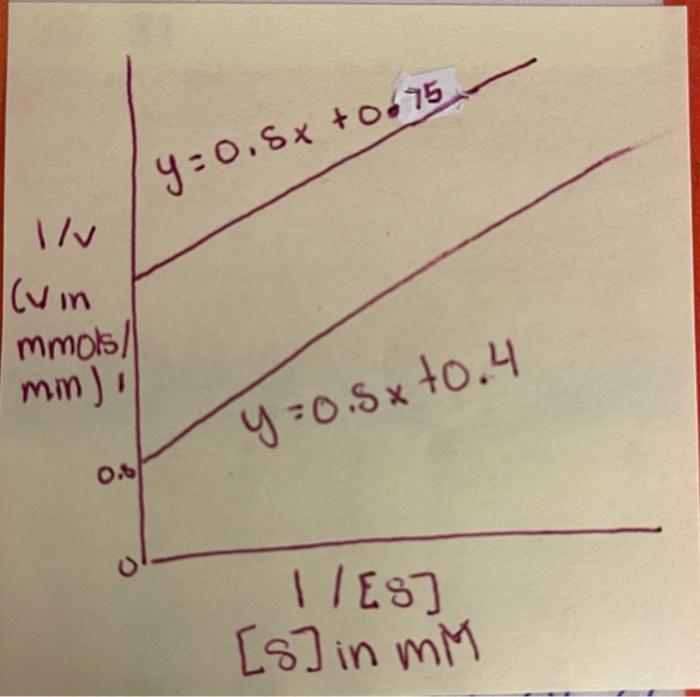 y=0.5x +0.75
1/v
(v in
mmols/
min) 1
y=0.5x+0.4
0.5
0
1/[S]
[S] in mM